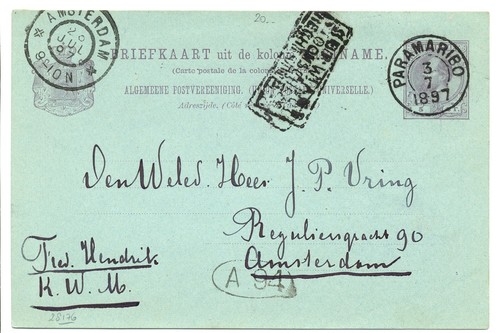 20.-
AMSTERDAM
BRIEFKAART uit de kolonie SURINAME.
(Carte postale de la colonie
ALGEMEENE POSTVEREENIGING. (UNION POSTALE UNIVERSELLE.)
Adreszijde. (Côté
PARAMARIBO
3
7
1897
Den Weled. Heer J. P. Vring
Reguliersgracht 90
Amsterdam
Fred. Hendrik
K. W. M.
A 94